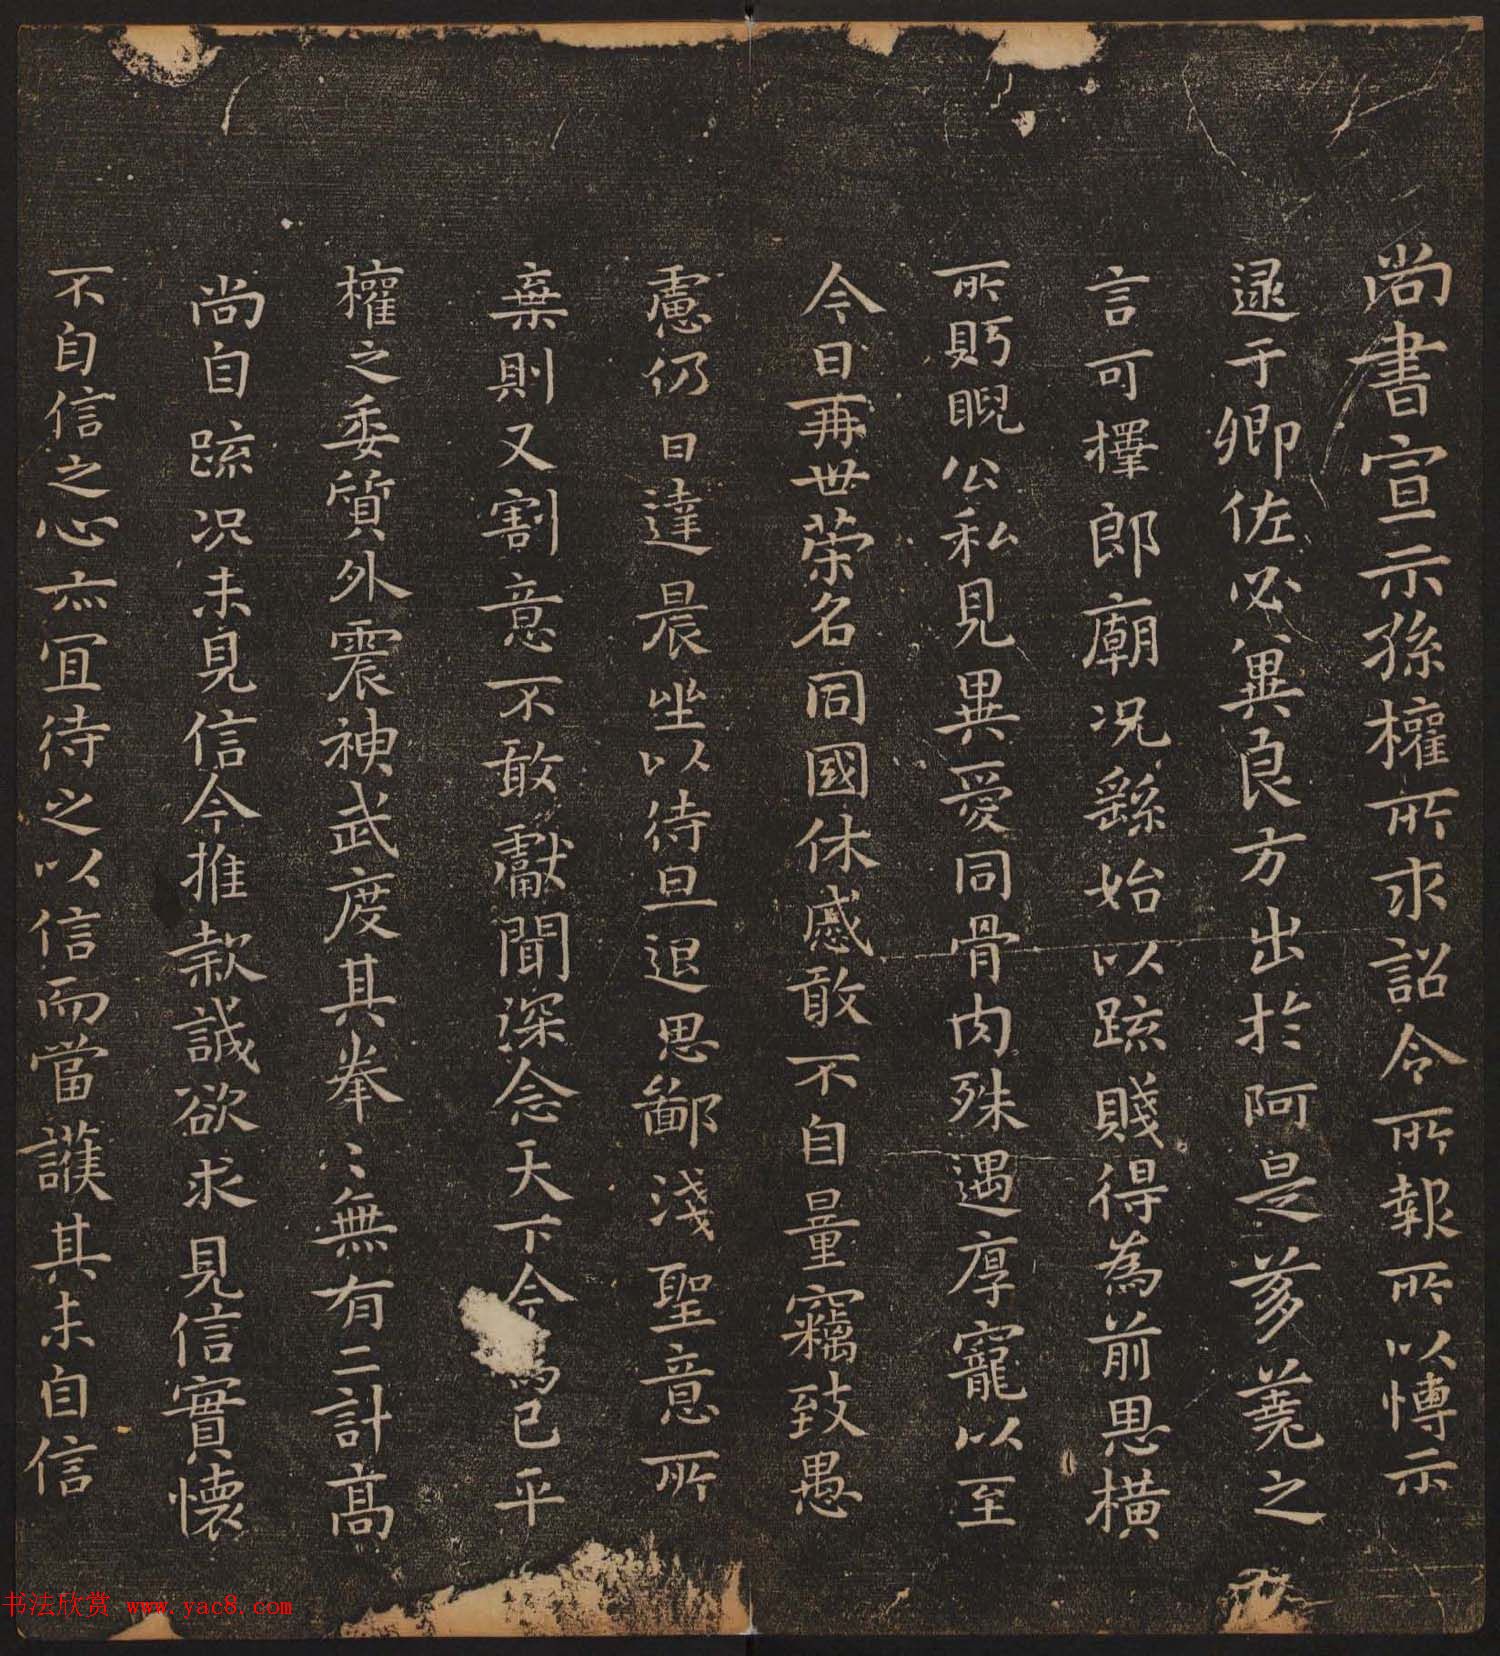 尚書宣示孫權所求詔令所報所以博示
逮于卿佐必冀良方出於阿是芻蕘之
言可擇郎廟況繇始以疏賤得為前恩橫
所眄睨公私見異愛同骨肉殊遇厚寵以至
今日再世榮名同國休慼敢不自量竊致愚
慮仍日達晨坐以待旦退思鄙淺聖意所
棄則又割意不敢獻聞深念天下今為已平
權之委質外震神武度其拳〻無有二計高
尚自疏況未見信今推款誠欲求見信實懷
不自信之心亦宜待之以信而當護其未自信
书法欣赏 www.yac8.com